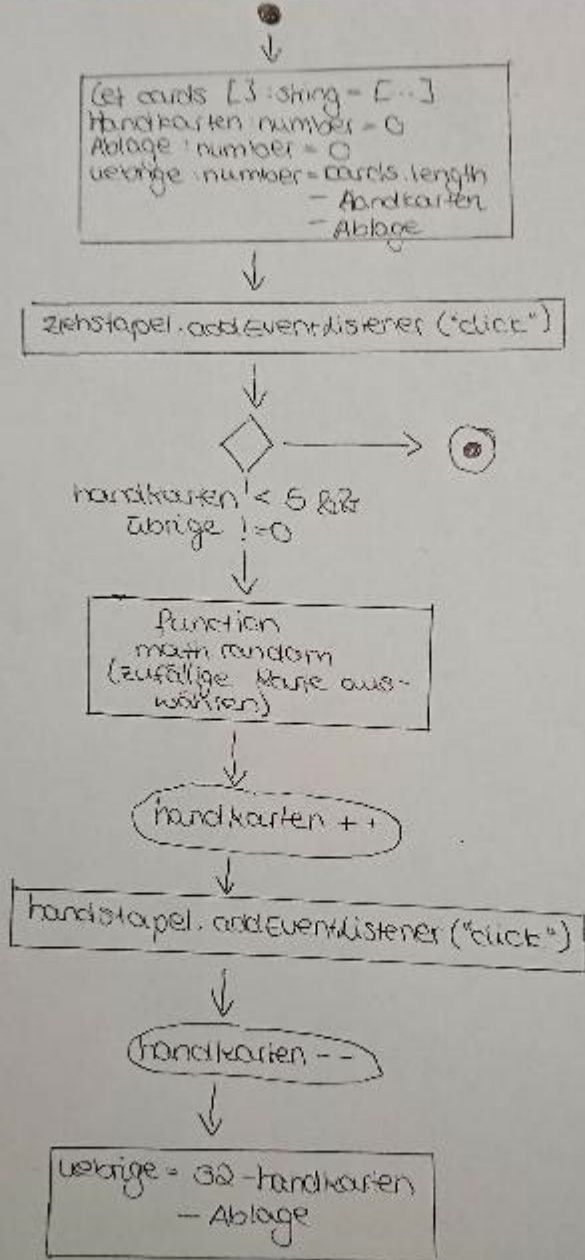 let cards [] : string = [...]
Handkarten : number = 0
Ablage : number = 0
uebrige : number = cards.length
- Handkarten
- Ablage
ziehstapel.addEventListener ("click")
handkarten < 5 &&
übrige != 0
function
math random
(zufällige Karte aus-
wählen)
handkarten ++
handstapel.addEventListener ("click")
handkarten --
uebrige = 32 - handkarten
- Ablage